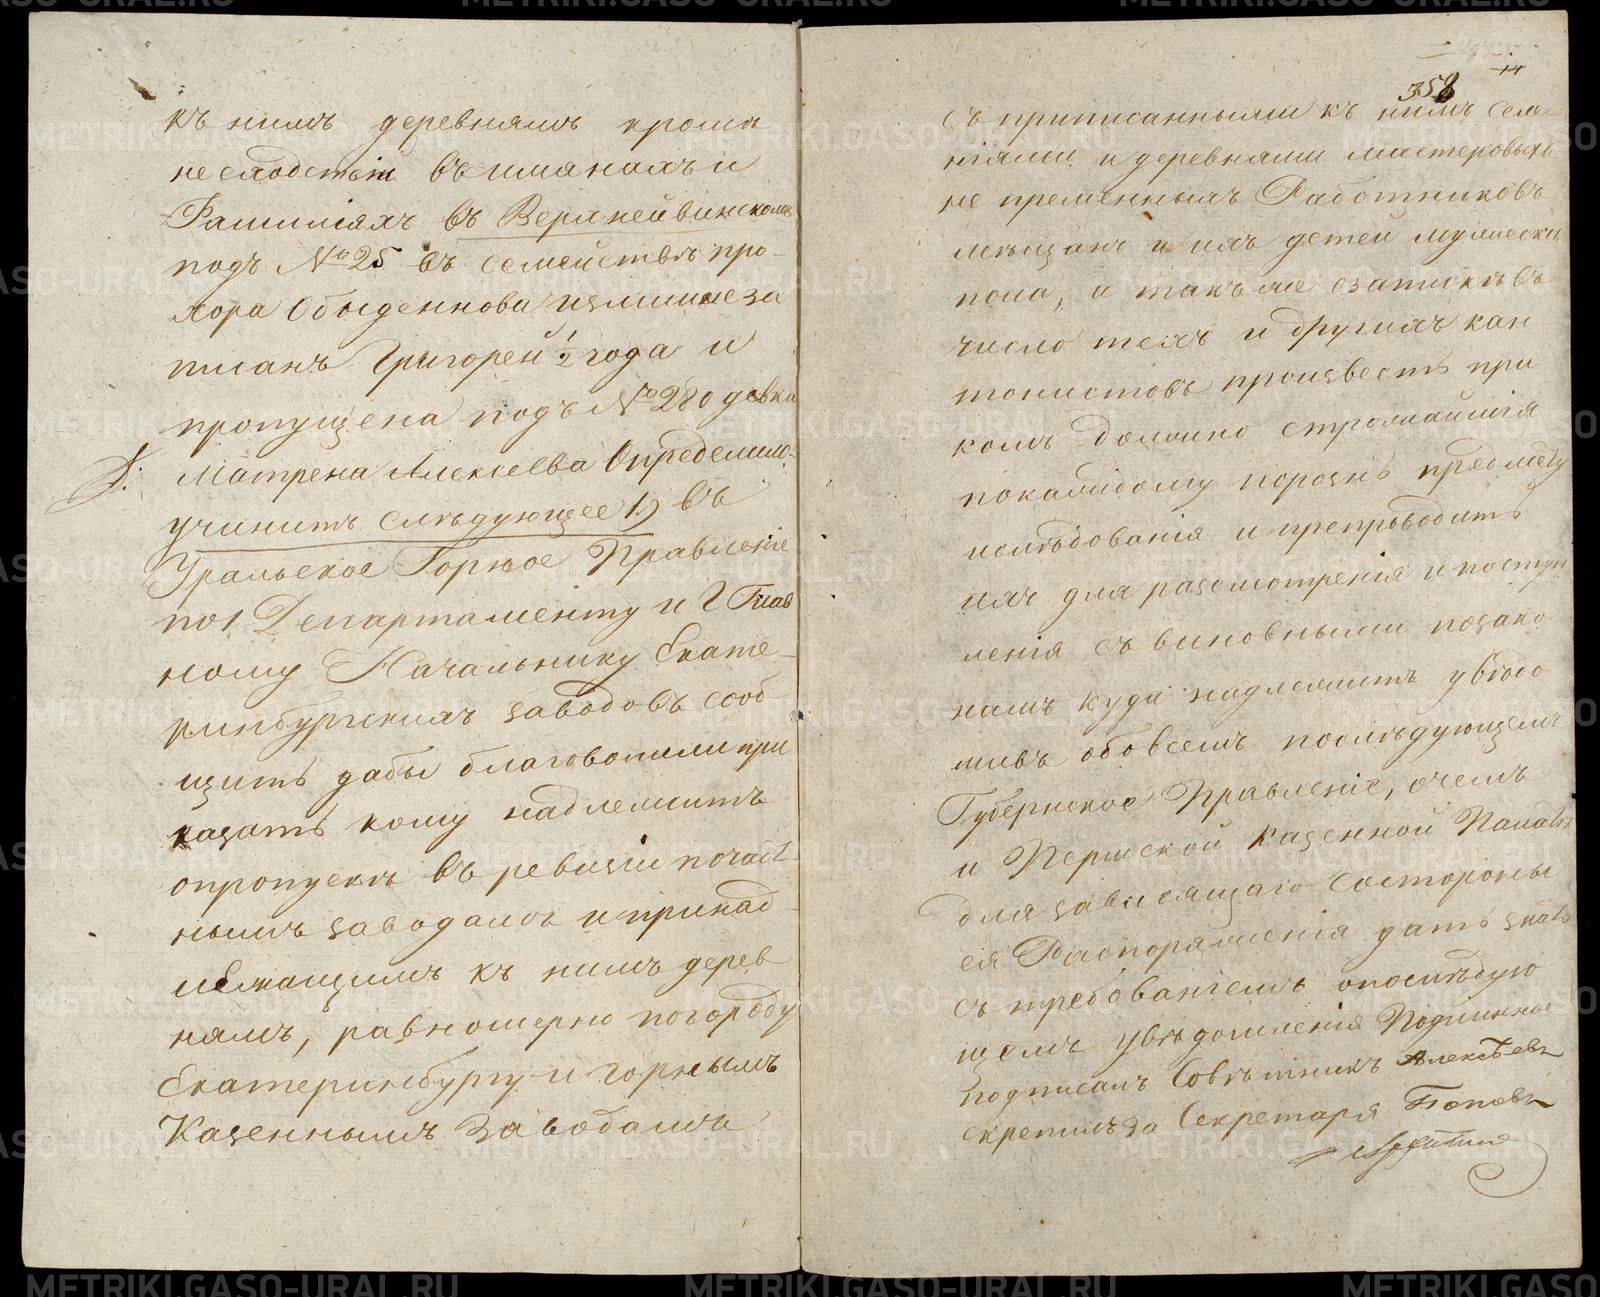 къ нимъ деревнямъ кроме
несходствіи въ имянахъ и
Фамиліяхъ въ Верхнейвинскомъ
подъ №25 въ семействе про-
хора Обыденнова излишне за
писанъ Григорей 1/2 года и
пропущена подъ №280 девка
Матрена Алексеева Определило:
учинить следующее 1.) въ
Уральское Горное Правленіе
по 1 Департаменту и Г Глав
ному Начальнику Екате-
ринбургскихъ заводовъ сооб-
щить дабы благоволили при
казать кому надлежитъ
опропуске въ ревизіи почаст-
нымъ заводамъ и принад-
лежащимъ къ нимъ дерев
нямъ, равномерно погороду
Екатеринбургу и горнымъ
Казеннымъ Заводамъ
358
14
съ приписанными къ нимъ селе-
ніями и деревнями мастеровыхъ
не пременныхъ Работниковъ
мещанъ и ихъ детей мужеска
пола, а такъже озаписке въ
число техъ и другихъ кан-
тонистовъ произвесть при
комъ должно строжайшія
покаждому порознь предмету
изследованія и препроводить
ихъ для разсмотренія и поступ
ленія съ виновными позако
намъ куда надлежитъ уведо
мивъ обо всемъ последующемъ
Губернское Правленіе, очемъ
и Пермской казенной Палате
для зависящаго состороны
ея Распоряженія дать знать
съ требованіемъ опоследую
щемъ уведомленія Подлинное
подписалъ Советникъ Алексеевъ
скрепилъ за Секретаря Поповъ